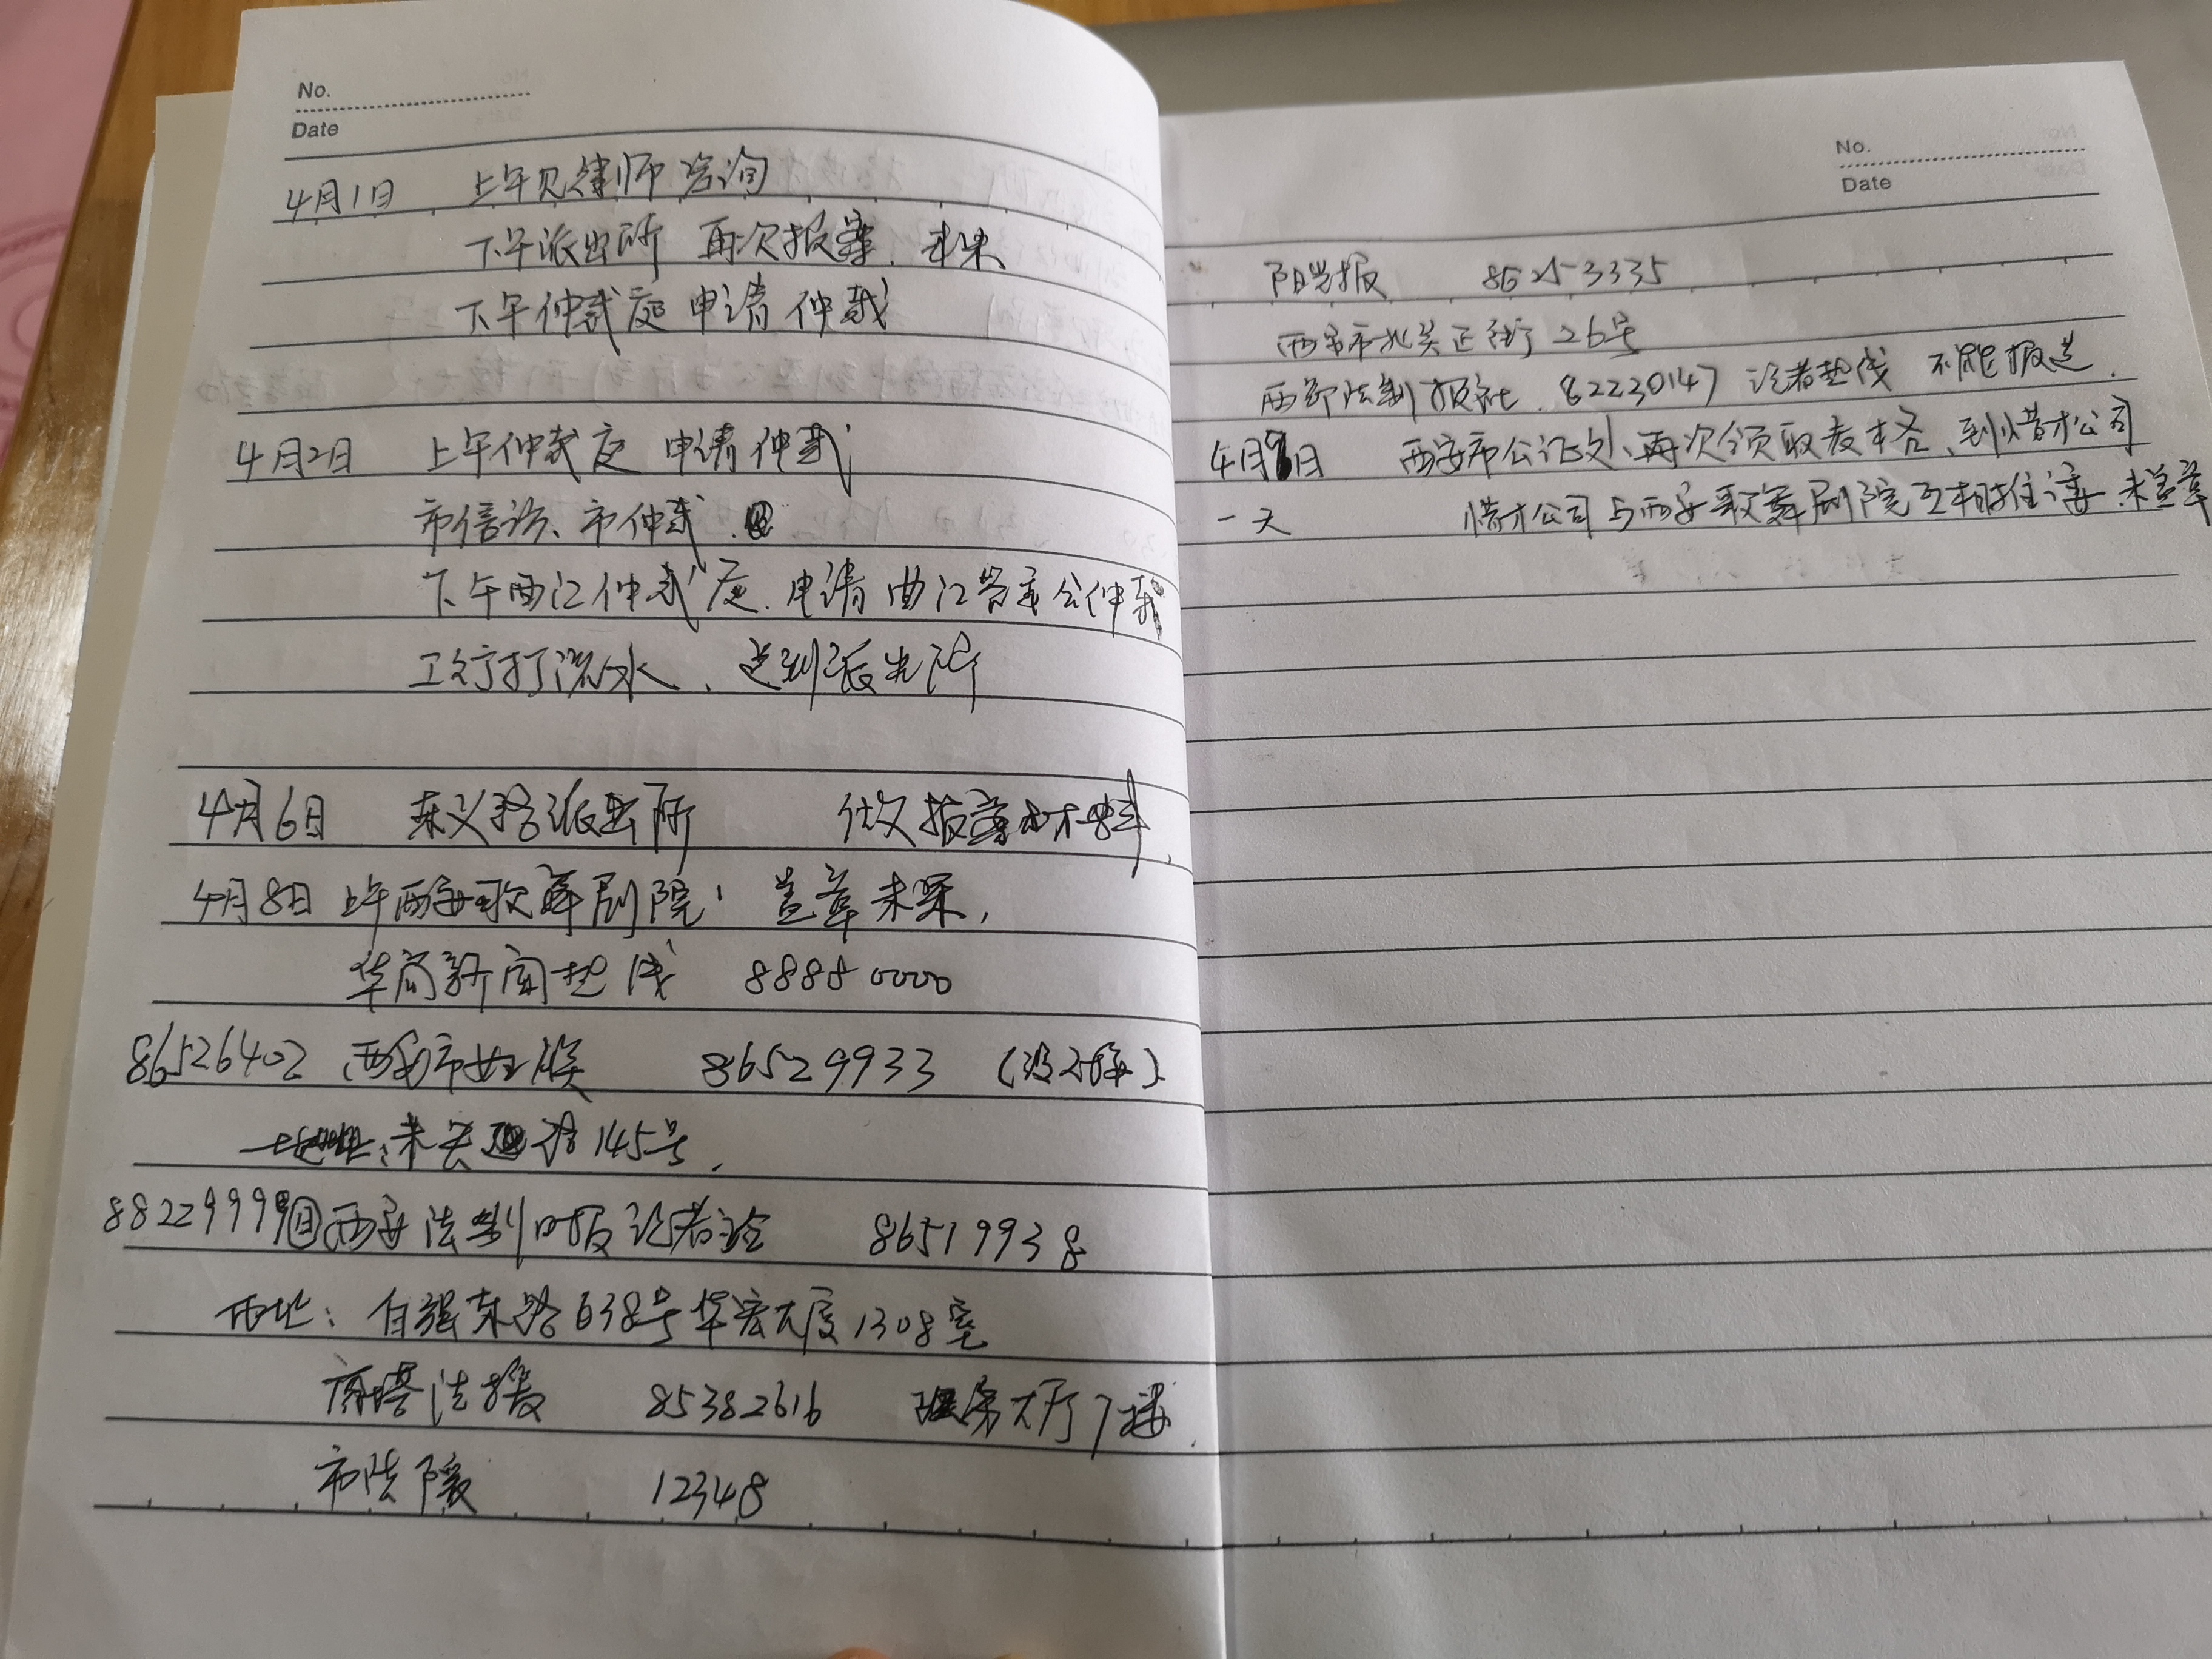 No.
Date
4月1日 上午见律师咨询
下午派出所 再次报案. 未果
下午仲裁庭 申请仲裁
4月2日 上午仲裁庭 申请仲裁
市信访、市仲裁.
下午曲江仲裁庭. 申请曲江管委会仲裁
工行打流水、送到派出所
4月6日 东义路派出所 做报案材料.
4月8日 上午西安歌舞剧院, 盖章未果,
华商新闻热线 88880000
86526402 西安市妇联 86529933 (没人接)
地址:未央路145号.
882299999 西安法制日报记者站 86519938
地址: 自强东路638号华宏大厦1308室
雁塔法援 85382616 政务大厅7楼.
市法援 12348
No.
Date
阳光报 86253335
西安市北关正街26号
西部法制报社. 82230147 记者热线 不能报道.
4月9日 西安市公证处、再次领取表格、到惜才公司
一天 惜才公司与西安歌舞剧院互相推诿. 未盖章